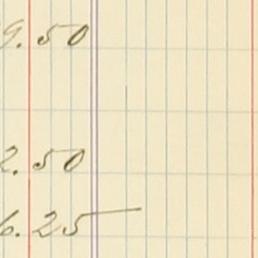 9.50
2.50
6.25